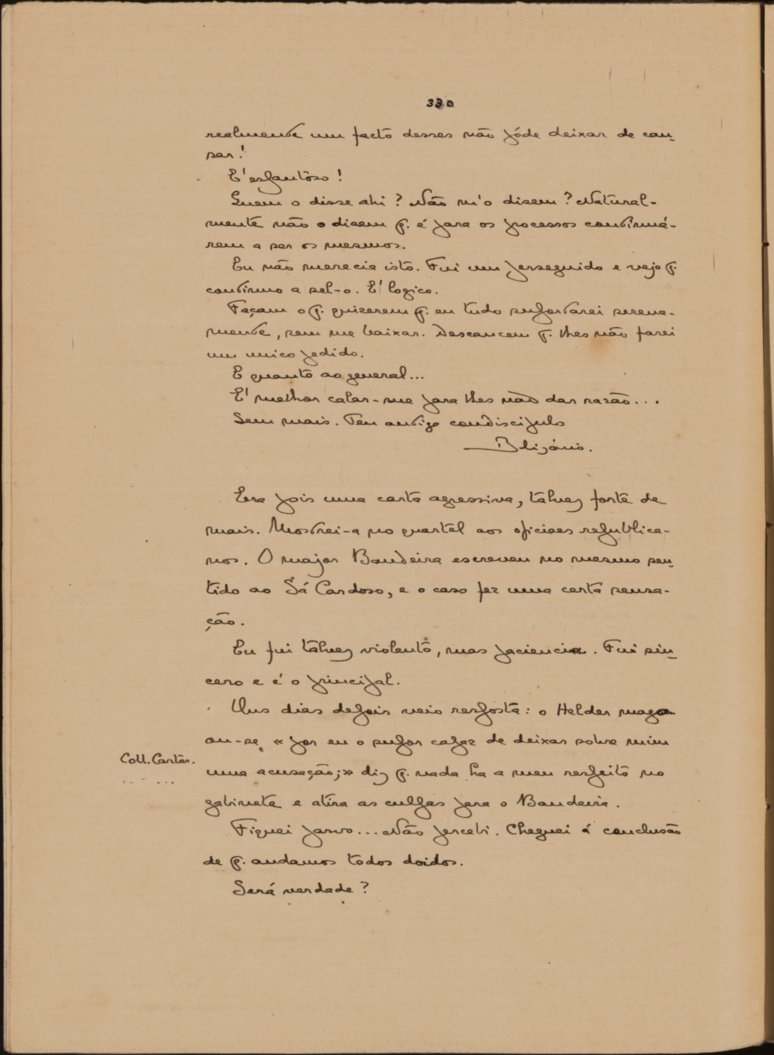 330
realmente um facto desses não póde deixar de cau-
sar!
E' espantôso!
Quem o disse ahi? Não m'o dizem? Natural-
mente não o dizem q. é para os processos continuá-
rem a ser os mesmos.
Eu não merecia isto. Fui um perseguido e vejo q.
continuo a sel-o. E' logico.
Façam o q. quizerem q. eu tudo suportarei serena-
mente, sem me baixar. Descancem q. lhes não farei
um unico pedido.
E quanto ao general...
E' melhor calar-me para lhes não dar razão...
Sem mais. Teu antigo condiscipulo
Belizário.
Era pois uma carta agressiva, talvez forte de
mais. Mostrei-a no quartel aos oficiaes republica-
nos. O major Bandeira escreveu no mesmo sen-
tido ao Sá Cardoso, e o caso fez uma certa sensa-
ção.
Eu fui talvez violento, mas paciencia. Fui sin-
cero e é o principal.
Uns dias depois veio resposta: o Helder mago-
ou-se « por eu o supor capaz de deixar sobre mim
Coll. Cartas.
uma acusação;» diz q. nada ha a meu respeito no
gabinete e atira as culpas para o Bandeira.
Fiquei parvo... Não percebi. Cheguei á conclusão
de q. andamos todos doidos.
Será verdade?